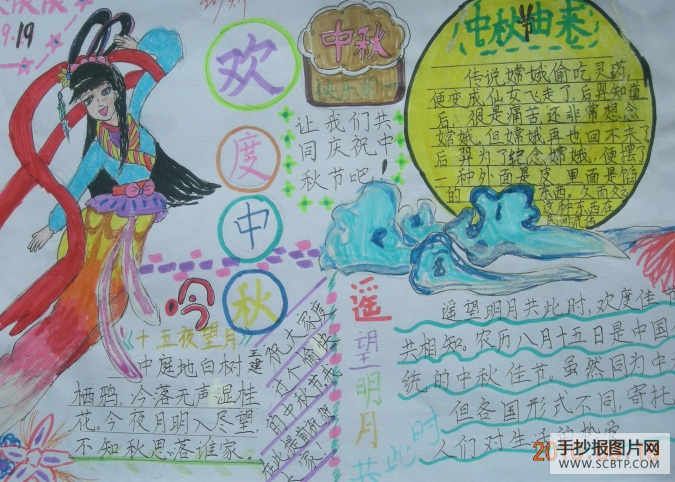 9.19
欢度中秋
中秋
让我们共
同庆祝中
秋节吧！
中秋节由来
传说嫦娥偷吃灵药,
便变成仙女飞走了后羿知道
后,很是痛苦还非常想念
嫦娥,但嫦娥再也回不来了
后羿为了纪念嫦娥,便摆了
一种外面是皮,里面是馅
的
东西,久而久之
这种东西在
吟
《十五夜望月》
王建
中庭地白树
栖鸦,冷落无声湿桂
花。今夜月明人尽望
不知秋思落谁家。
祝大家度
过个愉快
的中秋节
在此提前祝
大家
遥望明月共此时
遥望明月共此时,欢度佳节
共相知。农历八月十五日是中国
统的中秋佳节。虽然同为中
但各国形式不同,寄托
人们对生活的热爱
手抄报图片网
WWW.SCBTP.COM